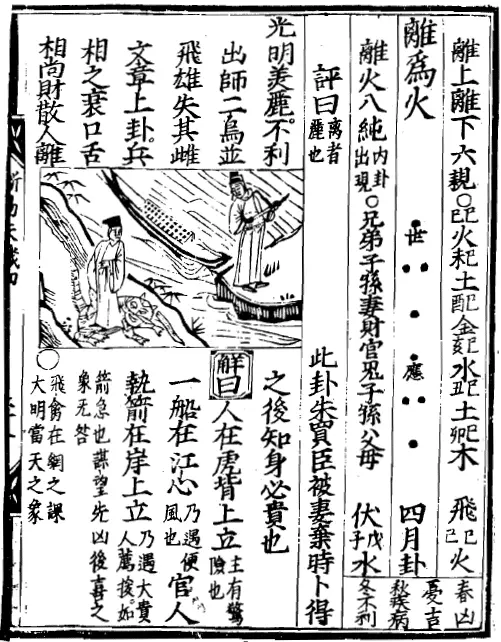 離上離下六親○己巳火己未土己酉金己亥水己丑土己卯木 飛己巳火
春凶
夏吉
秋疾病
冬不利
離爲火 世 應 四月卦
離火八純內卦出現○兄弟子孫妻財官鬼子孫父母 伏戊子水
評曰離者麗也 此卦朱買臣被妻棄時卜得
之後知身必貴也
光明美麗不利
出師二鳥並
飛雄失其雌
文章上卦兵
相之衰口舌
相尚財散人離
解曰人在虎背上立主有驚險也
一船在江心乃遇便風也官人
執箭在岸上立乃遇大貴人薦拔如
箭急也謀望先凶後喜之
象无咎
○飛禽在網之課
大明當天之象